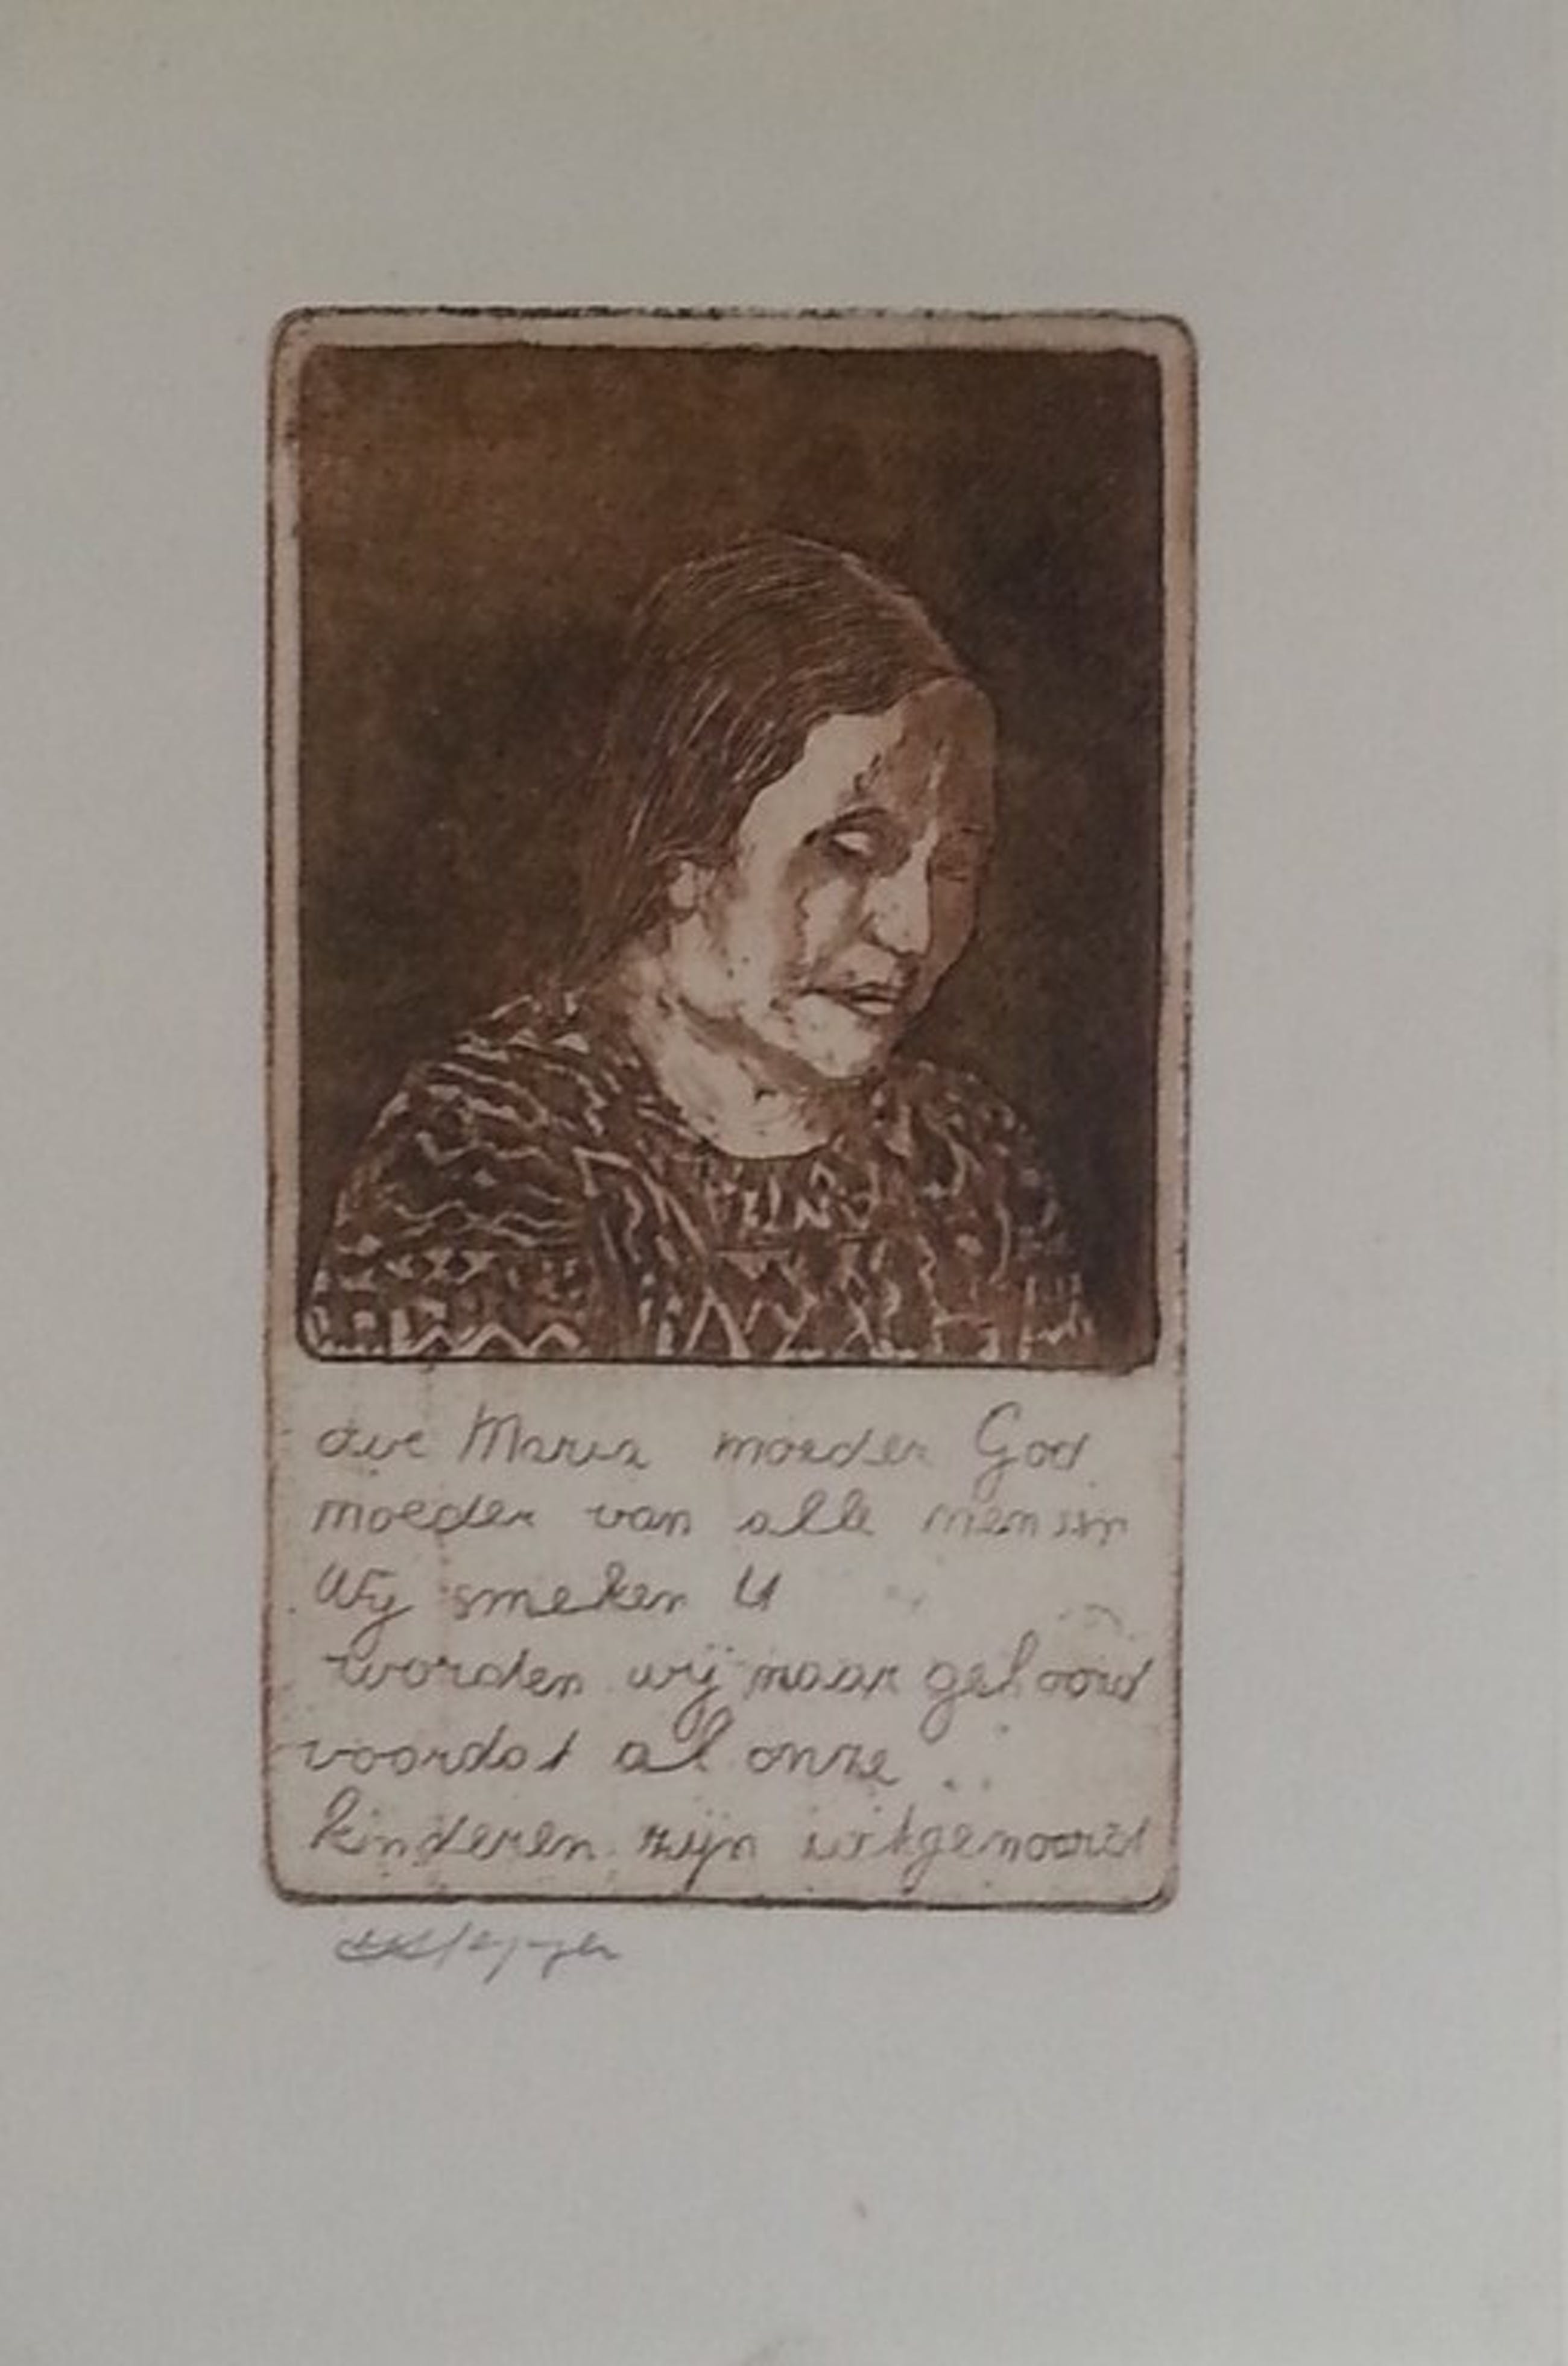 ave Maria moeder God
moeder van alle mensen
Wij smeken U
worden wij maar gehoord
voordat al onze
kinderen zijn uitgemoord